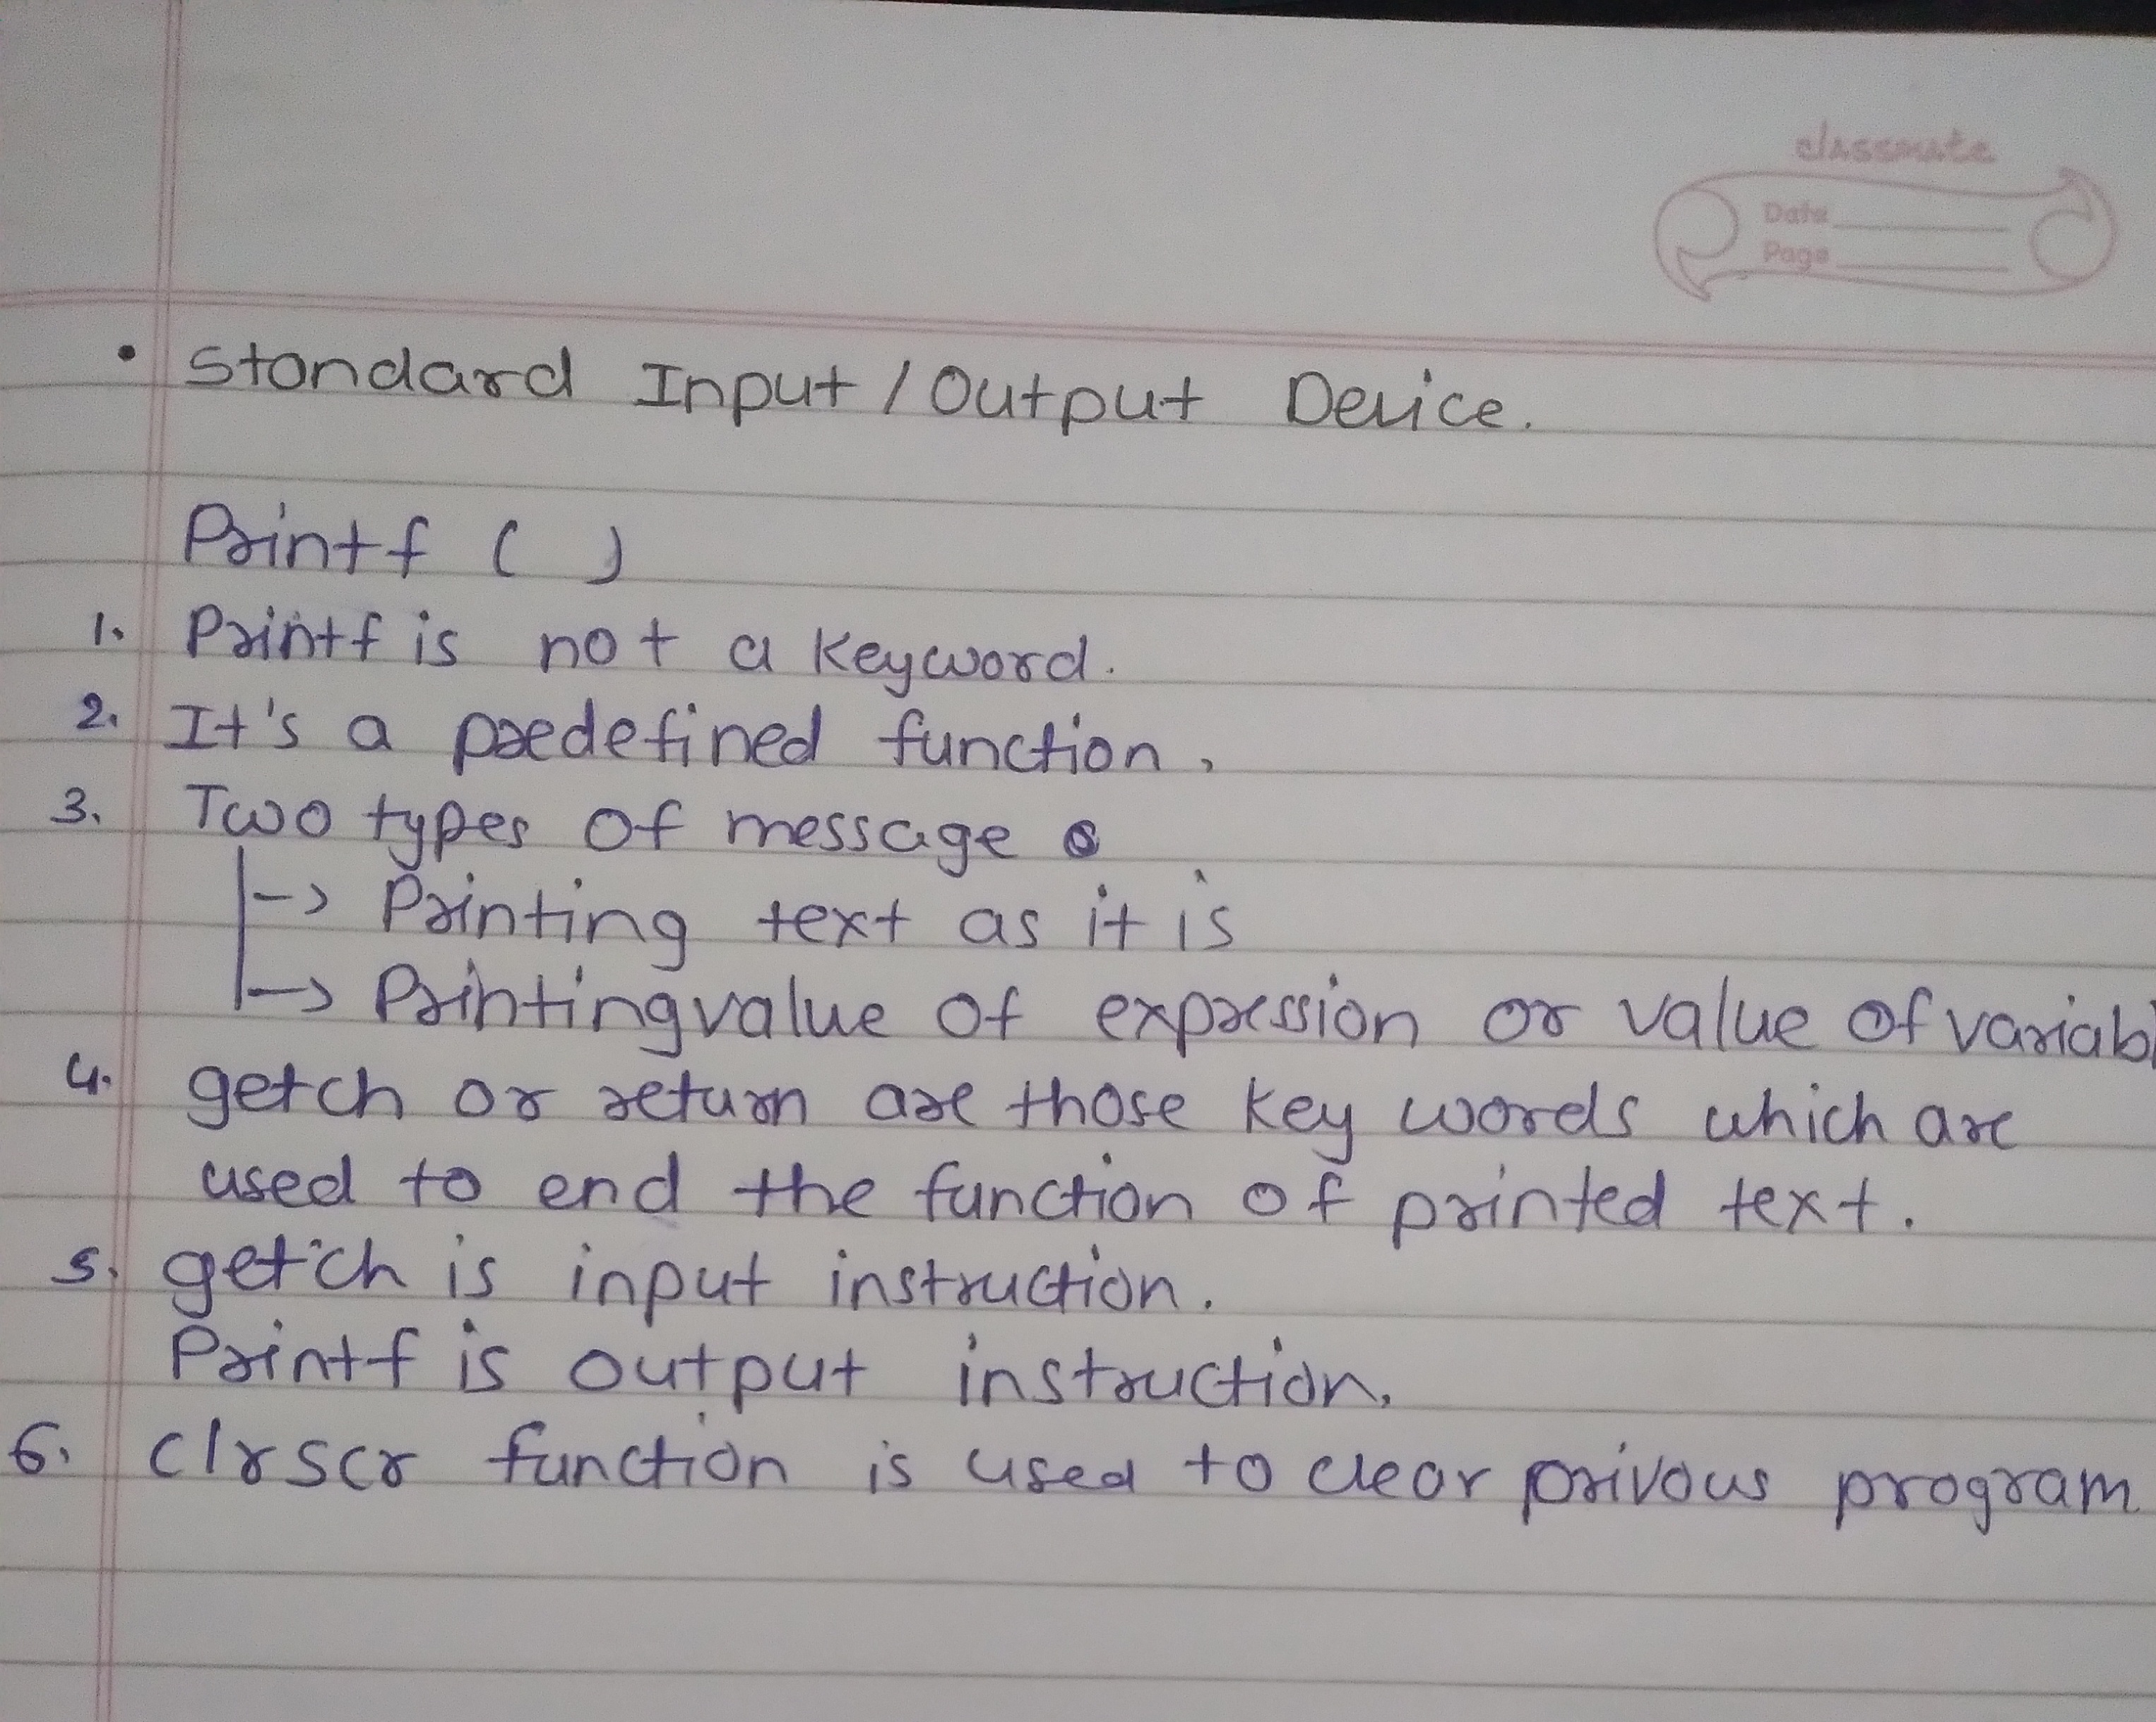 classmate
Date
Page
• Standard Input / Output Device.
Printf ( )
1. Printf is not a keyword.
2. It's a predefined function.
3. Two types of message
|-> Printing text as it is
|-> Printing value of expression or value of variab
4. getch or return are those key words which are
used to end the function of printed text.
5. getch is input instruction.
Printf is output instruction.
6. clrscr function is used to clear privous program